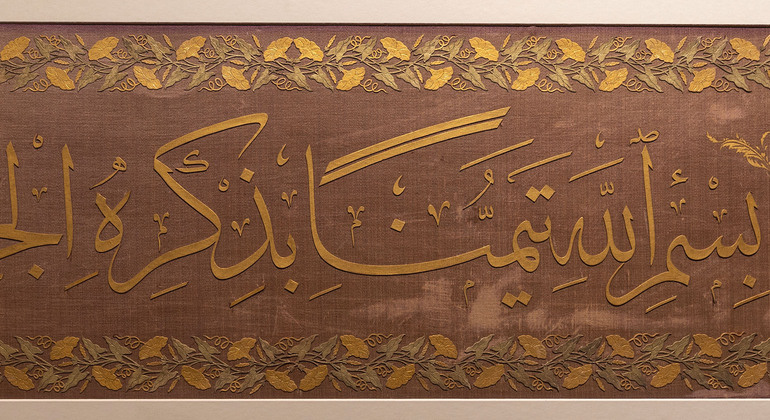 بِسْمِ اللَّهِ تَيَمُّنًا بِذِكْرِهِ